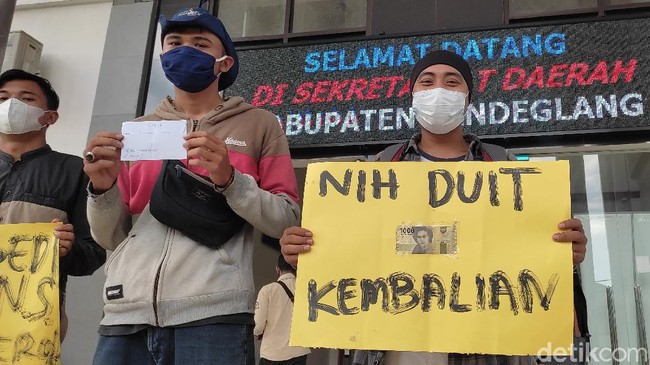 SELAMAT DATANG
DI SEKRETARIAT DAERAH
KABUPATEN PANDEGLANG
NIH DUIT
1000
KEMBALIAN
detikcom